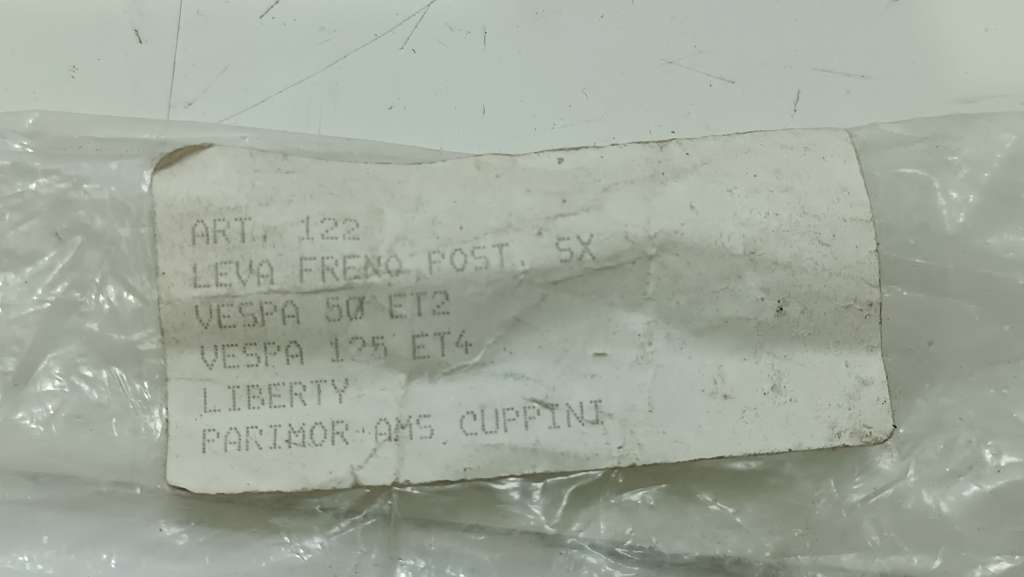 ART. 122
LEVA FRENO POST. SX
VESPA 50 ET2
VESPA 125 ET4
LIBERTY
PARIMOR AMS CUPPINI